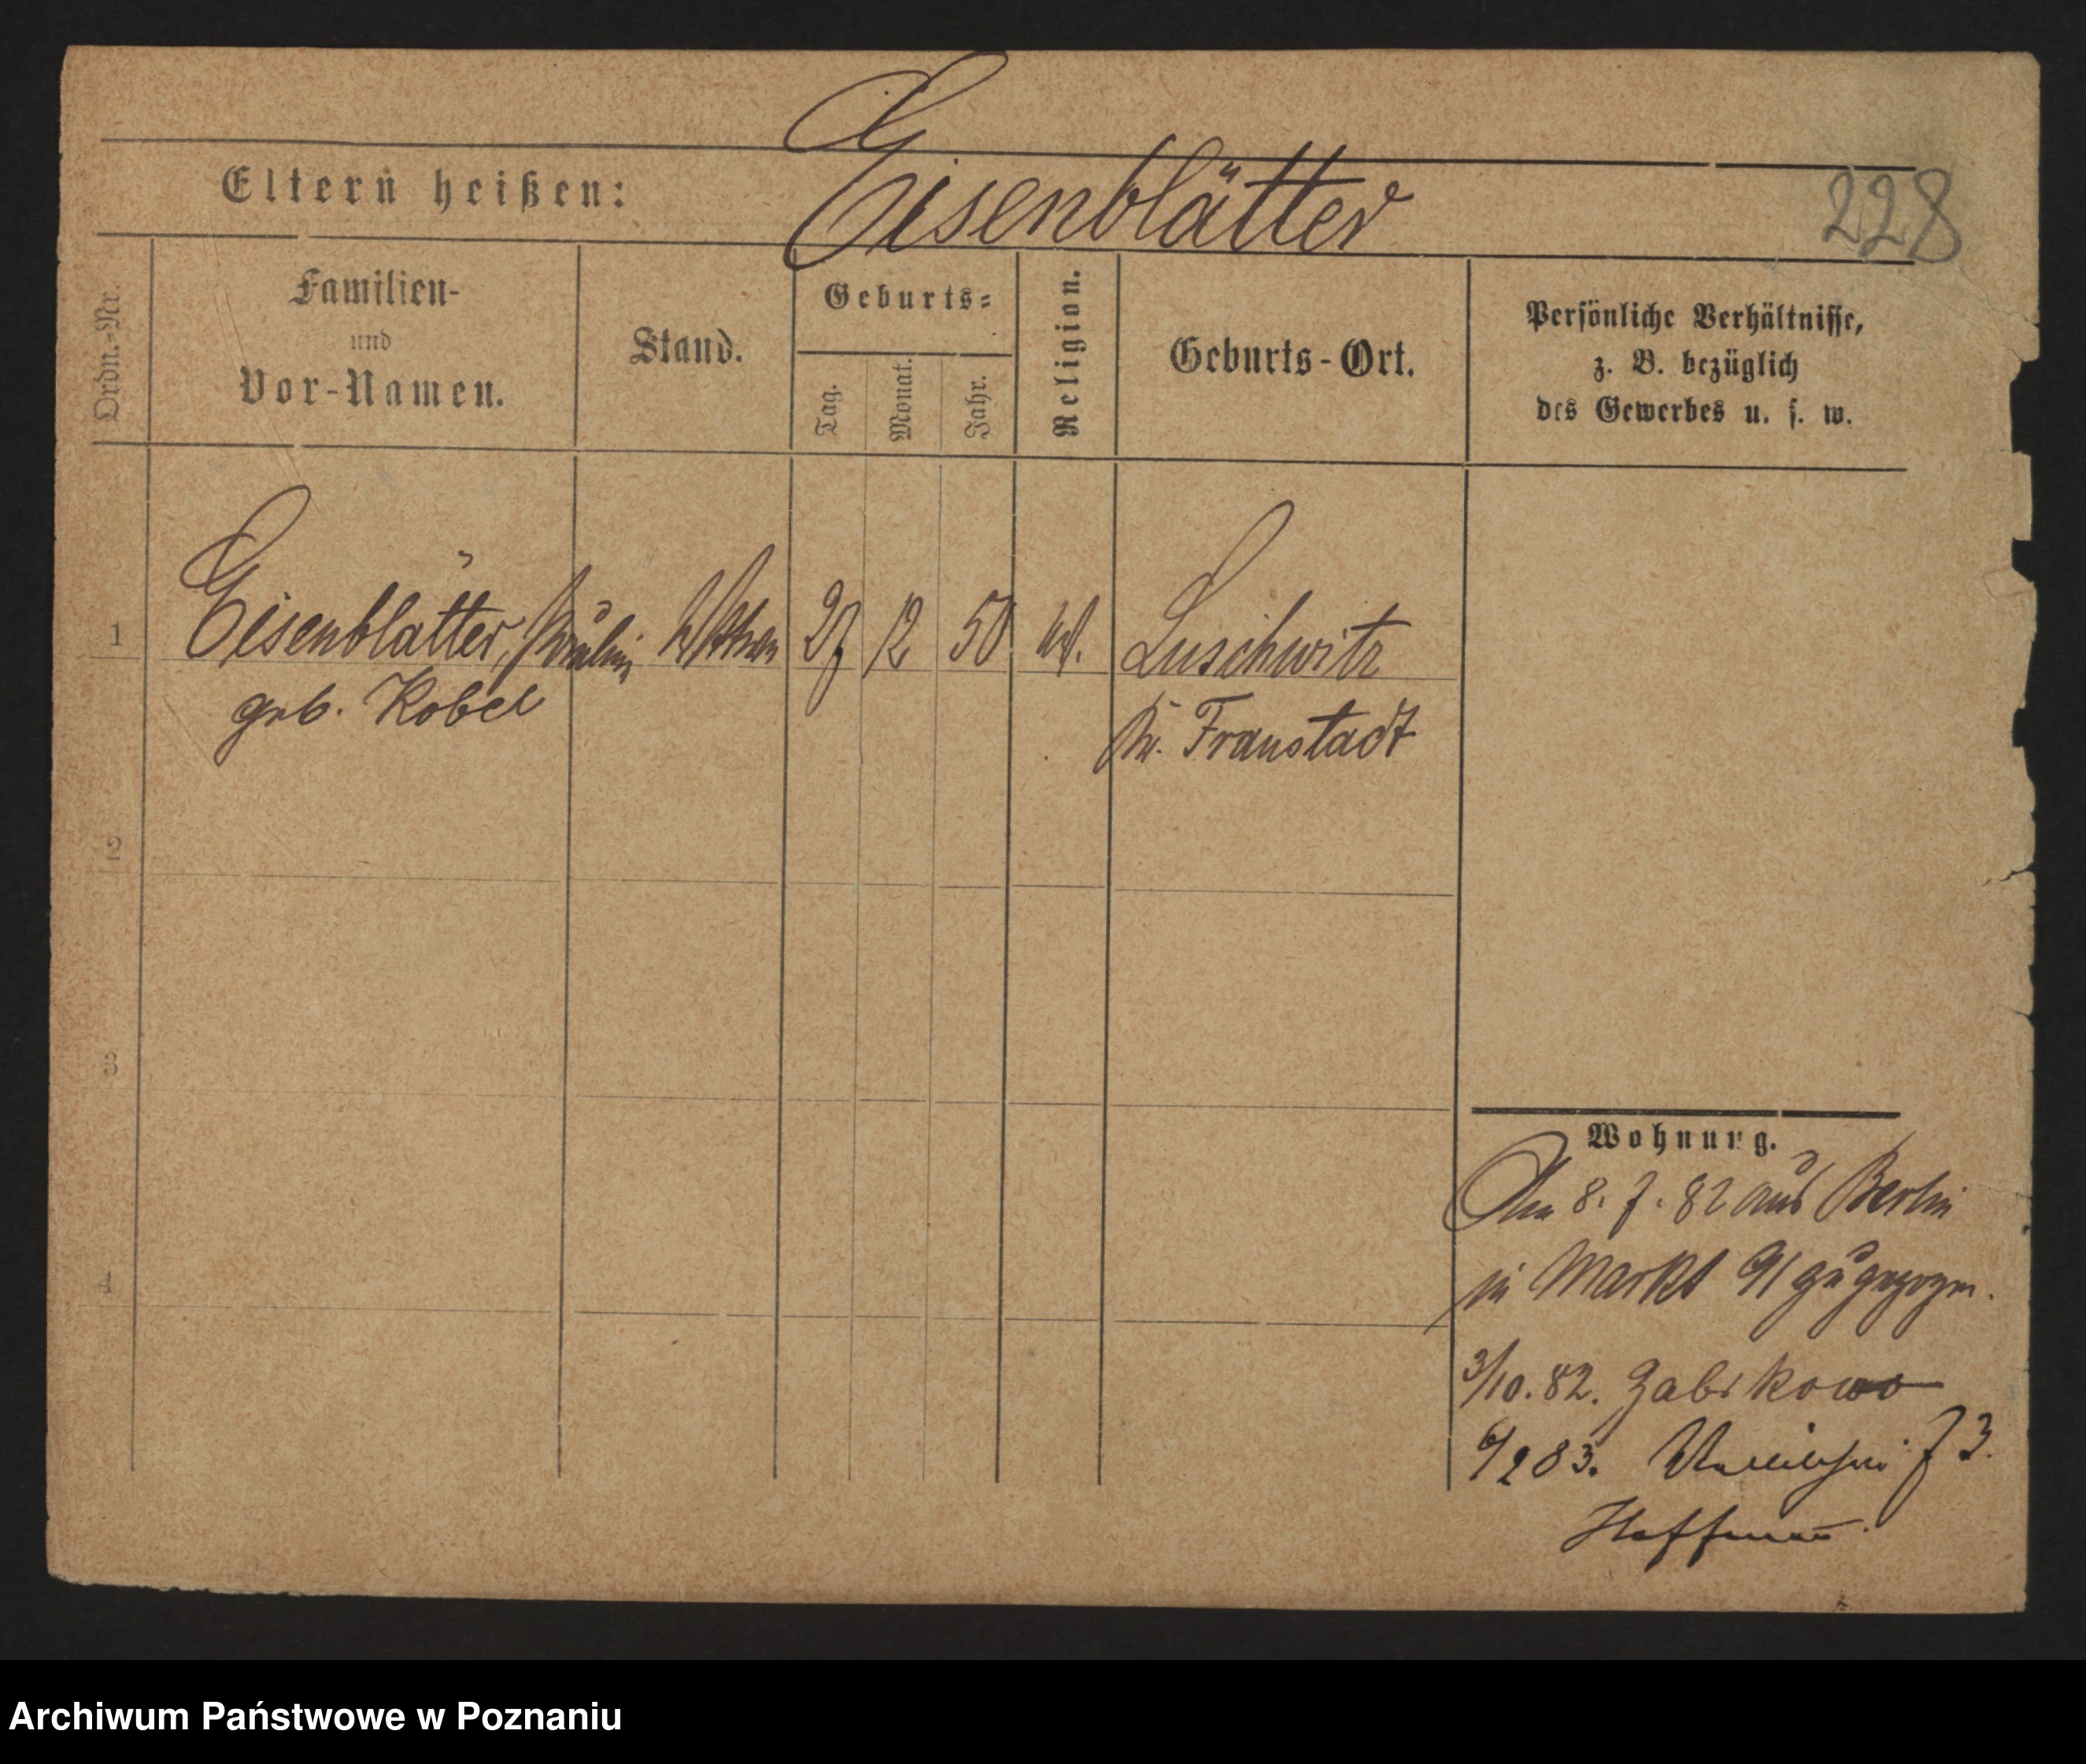 Eisenblätter
Eltern heißen:
228
Ordn.-Nr.
Familien-
und
Vor-Namen.
Stand.
Geburts-
Tag.
Monat.
Jahr.
Religion.
Geburts-Ort.
Persönliche Verhältnisse,
z. B. bezüglich
des Gewerbes u. s. w.
1 Eisenblätter, Paulin 27 12 50 Luschwitz
geb. Kobel Kr. Fraustadt
2
3
4
Wohnung.
Am 8. 7. 82 aus Berlin
in Markt 91 zugezogen.
3/10. 82. Zabikowo
6/2 83. 73.
Hoffmann.
Archiwum Państwowe w Poznaniu